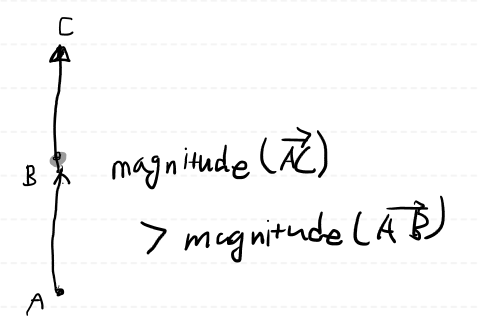 C
B
magnitude (AC)
> magnitude (AB)
A